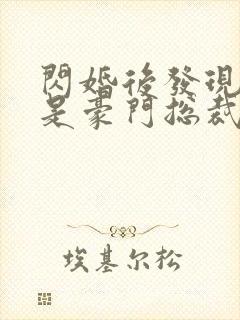 閃婚後發現
是豪門總裁
埃基尔松